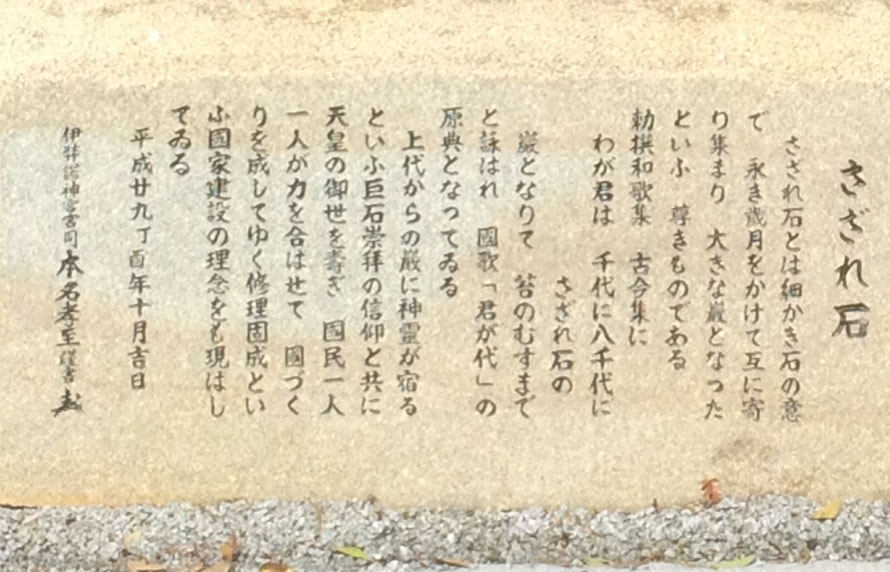 さざれ石
さざれ石とは細かき石の意
で 永き歳月をかけて互に寄
り集まり 大きな巌となった
といふ 尊きものである
勅撰和歌集 古今集に
わが君は 千代に八千代に
さざれ石の
巌となりて 苔のむすまで
と詠はれ 國歌「君が代」の
原典となってゐる
上代からの巌に神靈が宿る
といふ巨石崇拝の信仰と共に
天皇の御世を寿ぎ 國民一人
一人が力を合はせて 國づく
りを成してゆく修理固成とい
ふ國家建設の理念をも現はし
てゐる
平成廿九丁酉年十月吉日
伊弉諾神宮宮司 本名孝至 謹書